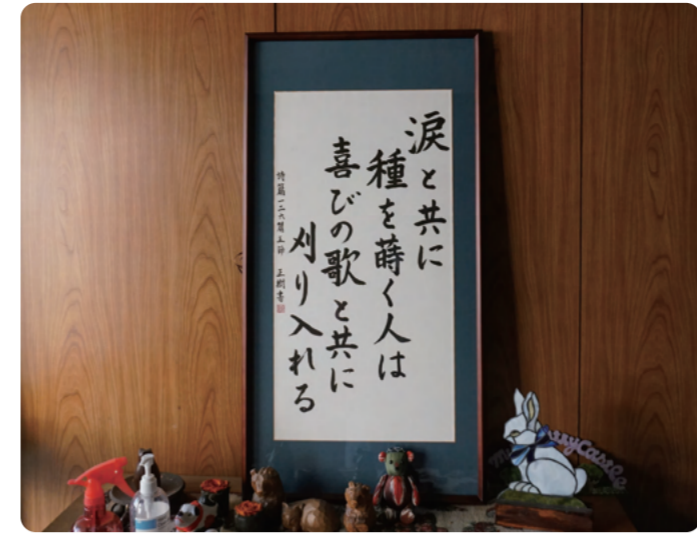 涙と共に
種を蒔く人は
喜びの歌と共に
刈り入れる
詩篇一二六篇五節 正樹書